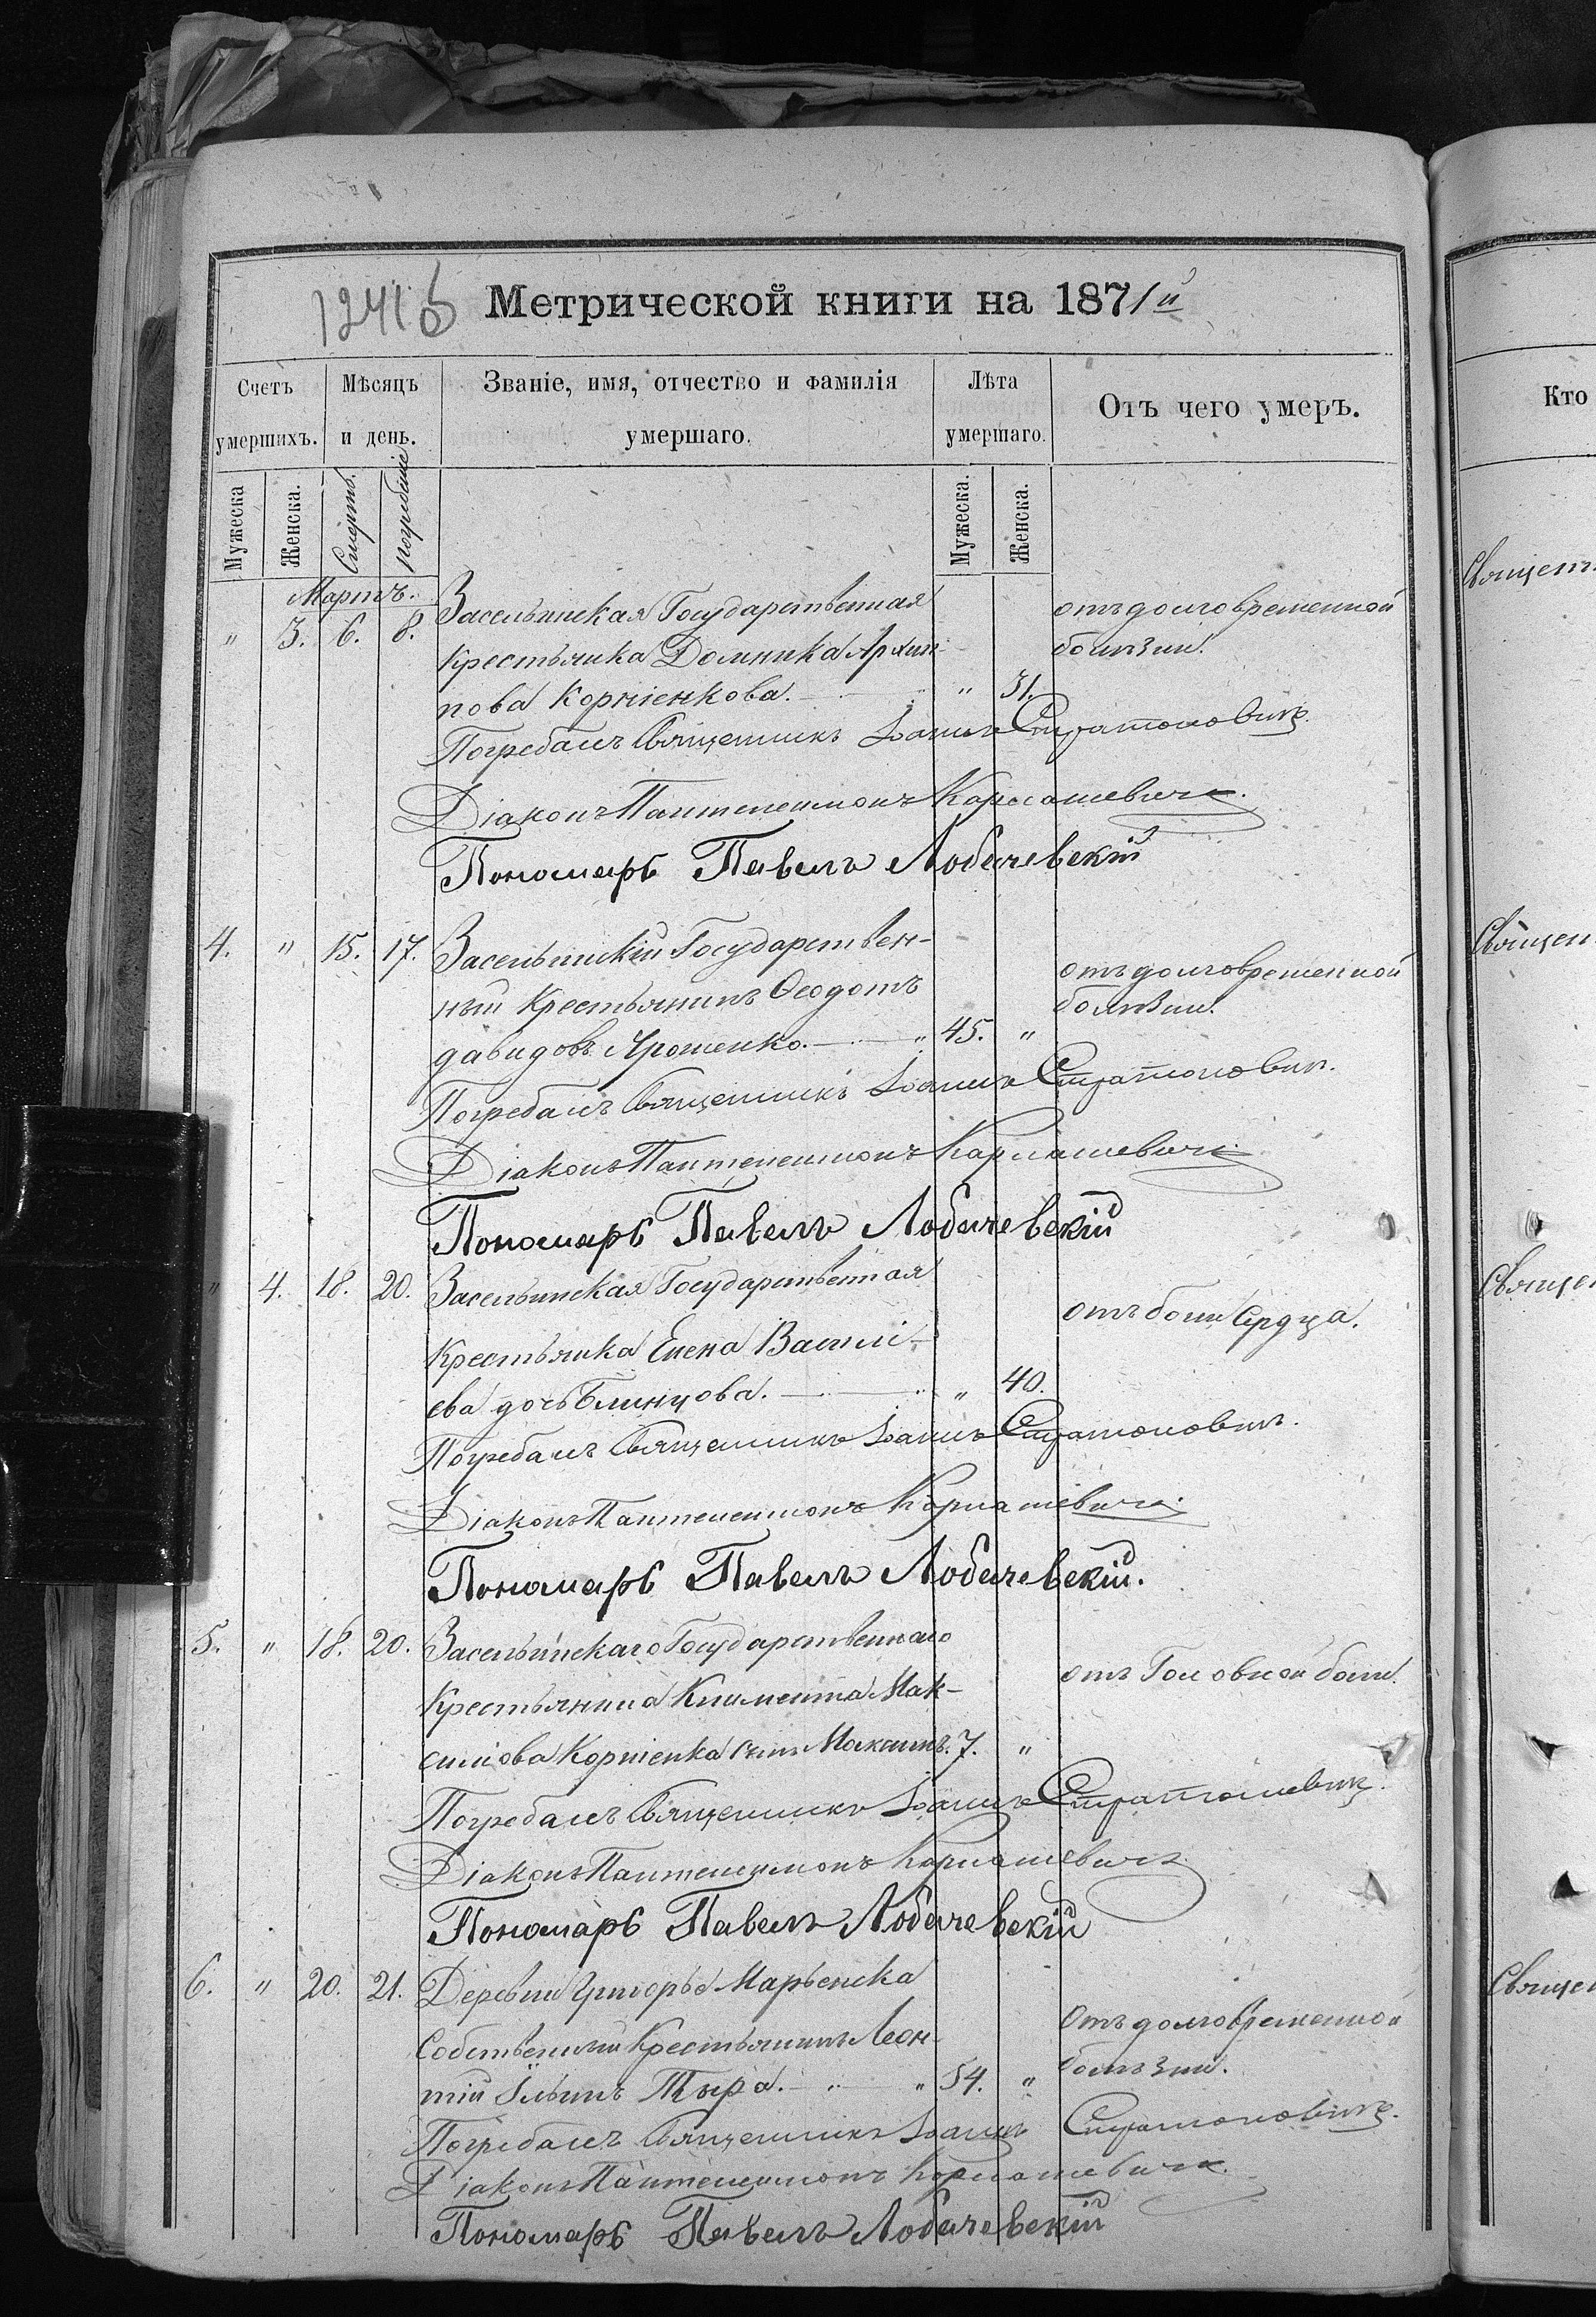 1241б Метрической книги на 1871й
Счетъ умершихъ.
Мѣсяцъ и день.
Званіе, имя, отчество и фамилія умершаго.
Лѣта умершаго.
Отъ чего умеръ.
Мужеска Женска. Смерть. погребеніе Мужеска. Женска.
Мартъ.
" 3. 6. 8. Засельинская Государственная отъ долговременной
Крестьянка Домника Архип- болѣзни.
пова Корніенкова. " 31.
Погребалъ Священникъ Іоаннъ Стратоновичъ.
Діаконъ Пантелеимонъ Карнашевичъ.
Пономарь Павелъ Лобачевскій
4. " 15. 17. Засельинскій Государствен-
ный Крестьянинъ Ѳеодотъ отъ долговременной
давидовъ Ярошенко. " 45. " болѣзни.
Погребалъ Священникъ Іоаннъ Стратоновичъ.
Діаконъ Пантелеимонъ Карнашевичъ
Пономарь Павелъ Лобачевскій
" 4. 18. 20. Засельинская Государственная
Крестьянка Елена Василі- отъ боли Сердца.
ева дочь Блинцова. " 40.
Погребалъ Священникъ Іоаннъ Стратоновичъ.
Діаконъ Пантелеимонъ Карнашевичъ.
Пономарь Павелъ Лобачевскій.
5. " 18. 20. Засельинскаго Государственнаго
Крестьянина Климента Мак- отъ Головной боли.
симова Корніенка сынъ Максимъ. 7. "
Погребалъ Священникъ Іоаннъ Стратоновичъ.
Діаконъ Пантелеимонъ Карнашевичъ
Пономарь Павелъ Лобачевскій
6. " 20. 21. Деревни Григорье Марьенска
Собственный Крестьянинъ Леон- Отъ долговременной
тій Ильинъ Тыра. " 54. " болѣзни.
Погребалъ Священникъ Іоаннъ Стратоновичъ.
Діаконъ Пантелеимонъ Карнашевичъ.
Пономарь Павелъ Лобачевскій
Кто
Священ
Священ
Священ
Священ